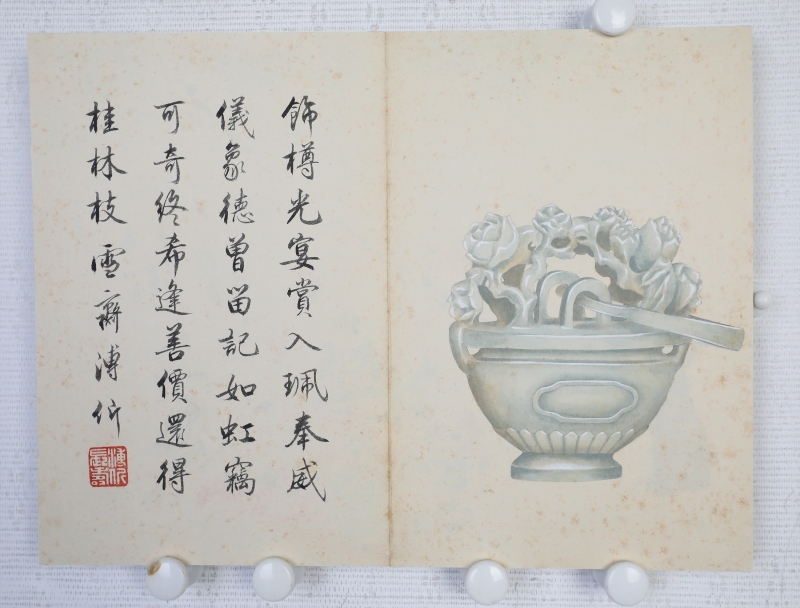 飾樽光宴賞入珮奉威
儀象德曾留記如虹竊
可奇終希逢善價還得
桂林枝雪齋溥伒